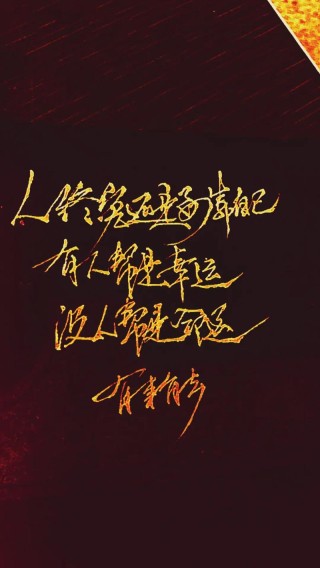 人终究还是要靠自己
有人帮是幸运
没人帮是命运
有来有去